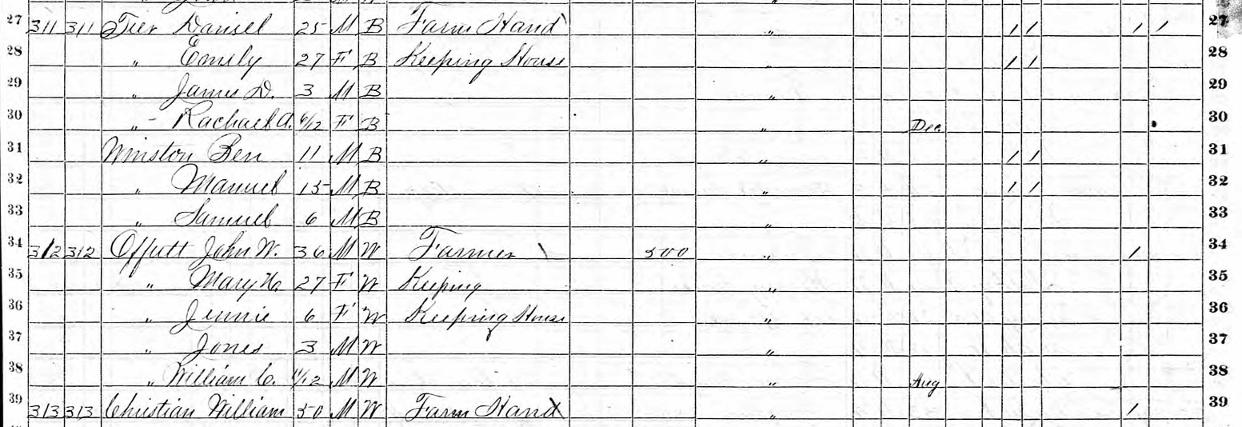 27 311 311 Tier Daniel 25 M B Farm Hand " 1 1 1 1 27
28 " Emily 27 F B Keeping House " 1 1 28
29 " James D. 3 M B " 29
30 " Rachael A. 6/12 F B " Dec 30
31 Winston Ben 11 M B " 1 1 31
32 " Manuel 15 M B " 1 1 32
33 " Samuel 6 M B " 33
34 312 312 Offutt John W. 36 M W Farmer 500 " 1 34
35 " Mary 27 F W Keeping " 35
36 " Jennie 6 F W Keeping House " 36
37 " Jones 3 M W " 37
38 " William C. 11/12 M W " Aug 38
39 313 313 Christian William 50 M W Farm Hand " 1 39